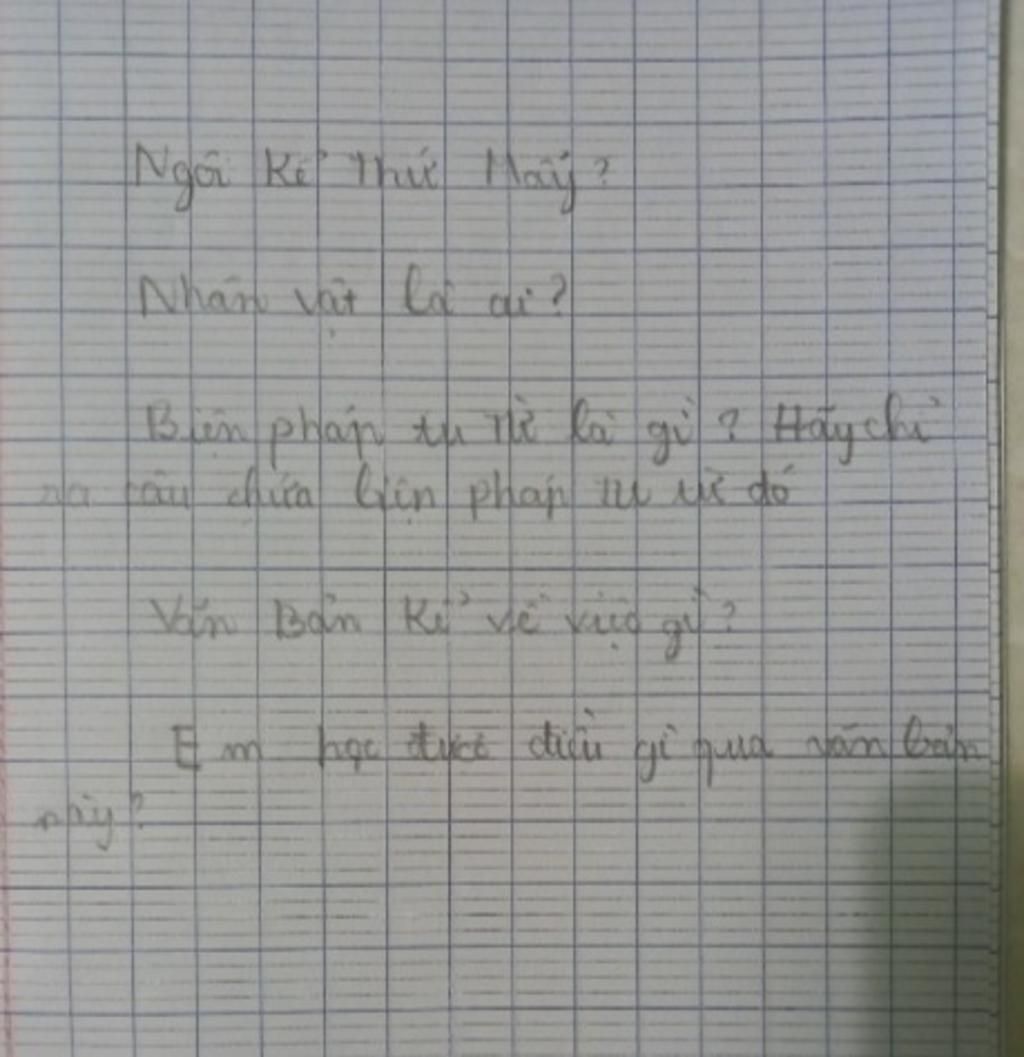 Ngôi kể thứ Mấy?
Nhân vật là ai?
Biện pháp tu từ là gì? Hãy chỉ
ra câu chứa biện pháp tu từ đó
Văn Bản kể về việc gì?
Em học được điều gì qua văn bản
này?